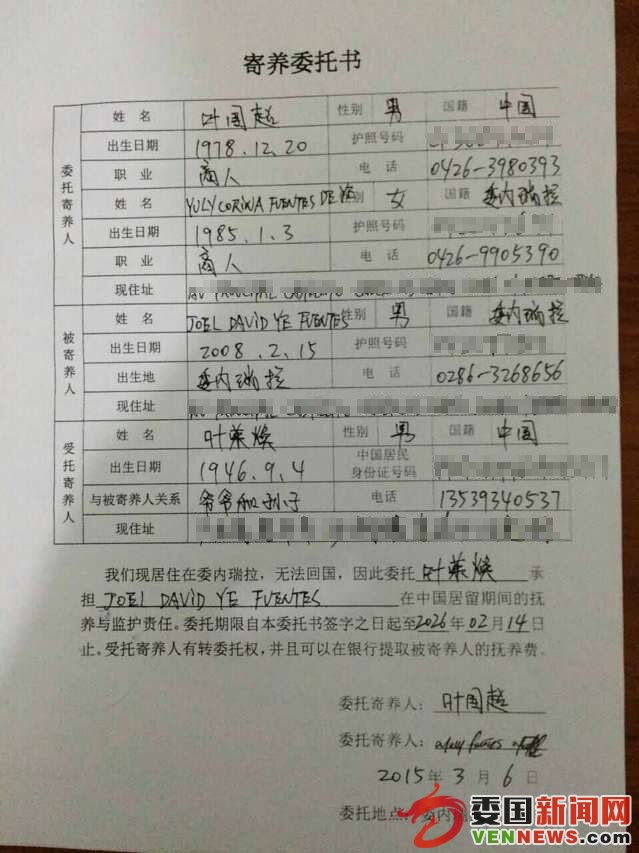 寄养委托书
委托寄养人
姓 名 叶国超 性别 男 国籍 中国
出生日期 1978.12.20 护照号码
职 业 商人 电 话 0426-3980393
姓 名 YULY CORINA FUENTES DE YE 性别 女 国籍 委内瑞拉
出生日期 1985.1.3 护照号码
职 业 商人 电 话 0426-9905390
现住址
被寄养人
姓 名 JOEL DAVID YE FUENTES 性别 男 国籍 委内瑞拉
出生日期 2008.2.15 护照号码
出生地 委内瑞拉 电 话 0286-3268656
现住址
受托寄养人
姓 名 叶荣焕 性别 男 国籍 中国
出生日期 1946.9.4 中国居民身份证号码
与被寄养人关系 爷爷和孙子 电话 13539340537
现住址
我们现居住在委内瑞拉，无法回国，因此委托 叶荣焕 承
担 JOEL DAVID YE FUENTES 在中国居留期间的抚
养与监护责任。委托期限自本委托书签字之日起至2026年02月14日
止。受托寄养人有转委托权，并且可以在银行提取被寄养人的抚养费。
委托寄养人：叶国超
委托寄养人：
2015年3月6日
委托地点：委内瑞
委国新闻网
VENNEWS.COM